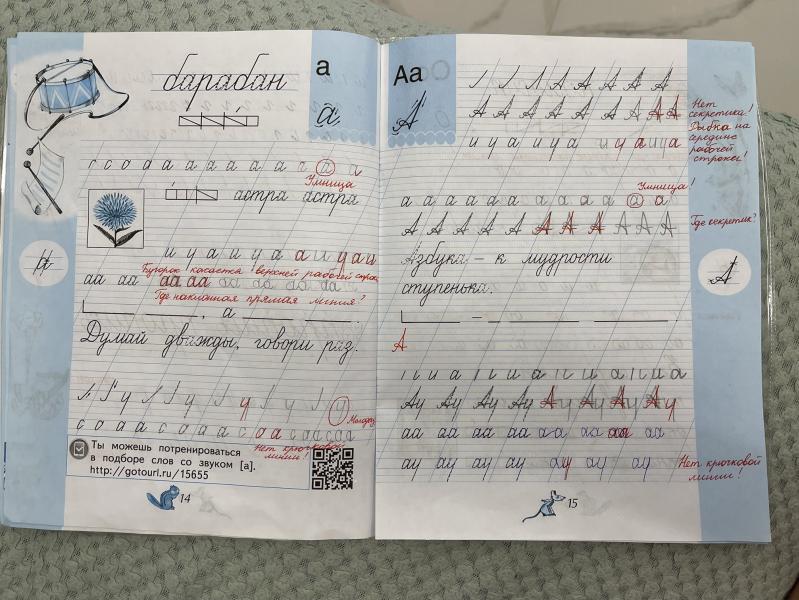 барабан
а
а
г с о д а а а а а а а г а а
Умница
астра астра
и у а и у а а и у а и
Бугорок касается верхней рабочей строки
аа аа аа аа аа аа аа аа
Где наклонная прямая линия?
, а .
Думай дважды, говори раз.
у у у у у
Молодец
с о а а с о а а с о а а с о а а с а а
Нет крючковой линии!
Ты можешь потренироваться
в подборе слов со звуком [а].
http://gotourl.ru/15655
14
Аа
А
А А А А А
А А А А А А А А А
Нет секретика!
и у а и у а и у а и у а
Рыбка на середине рабочей строки!
Умница!
а а а а а а а а а а
А А А А А А А А А А А
Где секретик?
Азбука – к мудрости
ступенька.
– .
А
А
и а и а и а и а
Ау Ау Ау Ау Ау Ау Ау Ау
аа аа аа аа аа аа аа аа
ау ау ау ау ау ау ау
Нет крючковой линии!
15